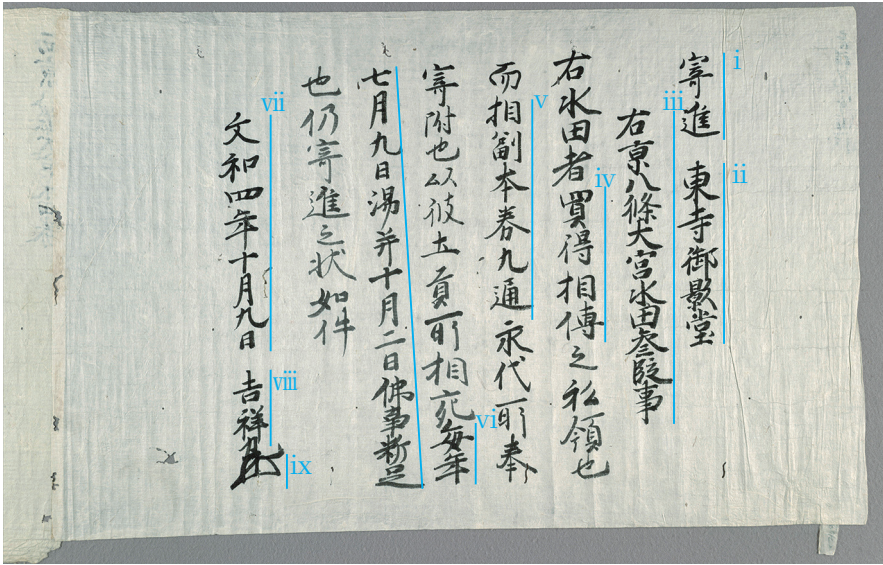 i
寄進 東寺御影堂
ii
iii
右京八條大宮水田叄段事
右水田者買得相傳之私領也
iv
而相副本券九通永代所奉
v
寄附也以彼土貢所相宛毎年
vi
七月九日湯并十月二日佛事料足
也仍寄進之状如件
vii
文和四年十月九日 吉祥
viii
ix